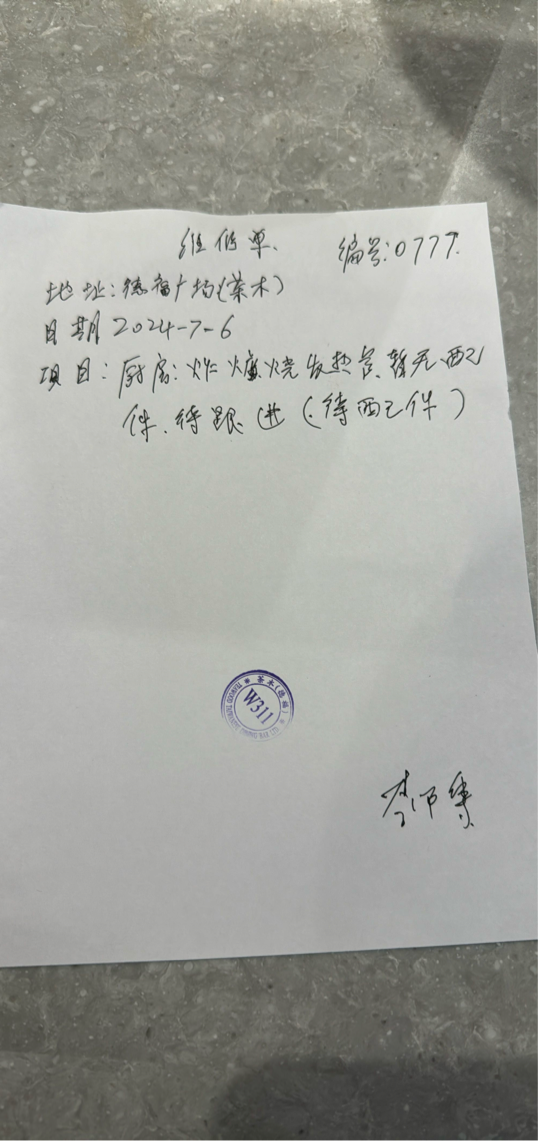 维修单. 编号:0777.
地址:德福广场(茶木)
日期 2024-7-6
项目:厨房:炸炉烧发热管、暂无配
件、待跟进(待配件)
茶木(德福)
W311